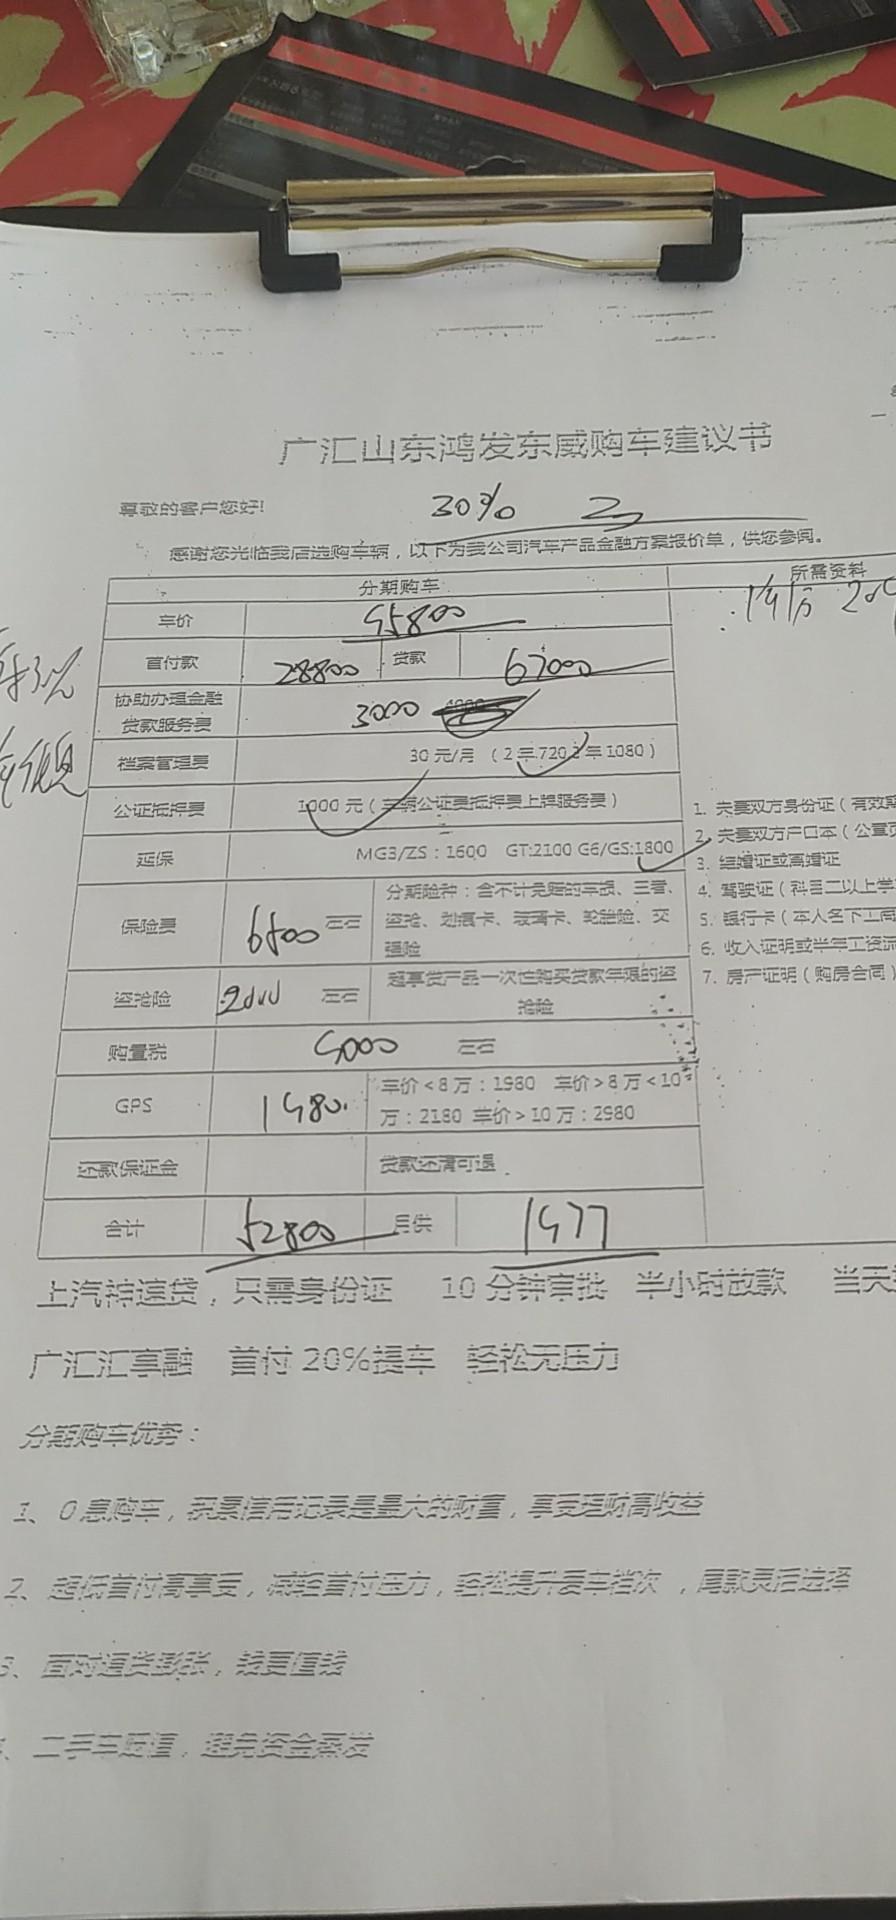 广汇山东鸿发东威购车建议书
尊敬的客户您好!
30%
感谢您光临我店选购车辆，以下为我公司汽车产品金融方案报价单，供您参阅。
分期购车 所需资料
车价 95800
首付款 28800 贷款 67000
协助办理金融贷款服务费 3000
档案管理费 30元/月（2年720 3年1080）
公证抵押费 1000元（车辆公证费抵押费上牌服务费）
延保 MG3/ZS：1600 GT:2100 G6/GS:1800
保险费 6500 左右 分期险种：含不计免赔的车损、三者、
盗抢、划痕卡、玻璃卡、轮胎险、交
强险
盗抢险 2000 左右 超享贷产品一次性购买贷款年限的盗
抢险
购置税 5000 左右
GPS 1980 车价<8万：1980 车价>8万<10
万：2180 车价>10万：2980
还款保证金 贷款还清可退
合计 52800 月供 1977
1. 夫妻双方身份证（有效期
2. 夫妻双方户口本（公章页
3. 结婚证或离婚证
4. 驾驶证（科目二以上学
5. 银行卡（本人名下工商
6. 收入证明或半年工资流
7. 房产证明（购房合同）
上汽神速贷，只需身份证 10分钟审批 半小时放款 当天
广汇汇享融 首付20%提车 轻松无压力
分期购车优势：
1、0息购车，积累信用记录是最大的财富，享受理财高收益
2、超低首付高享受，减轻首付压力，轻松提升爱车档次，尾款灵活选择
3、面对通货膨胀，钱更值钱
、二手车贬值，避免资金蒸发